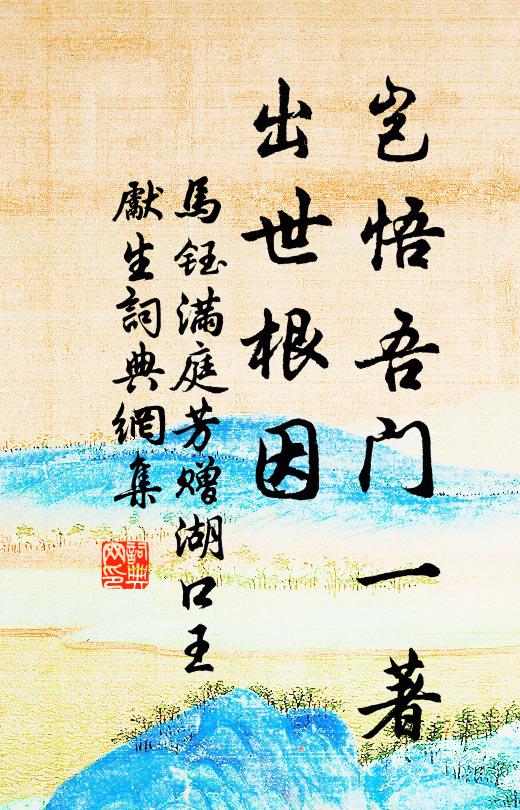 岂悟吾门一著
出世根因
馬鈺滿庭芳贈湖口王
獻生詞典網集
詞典
网印